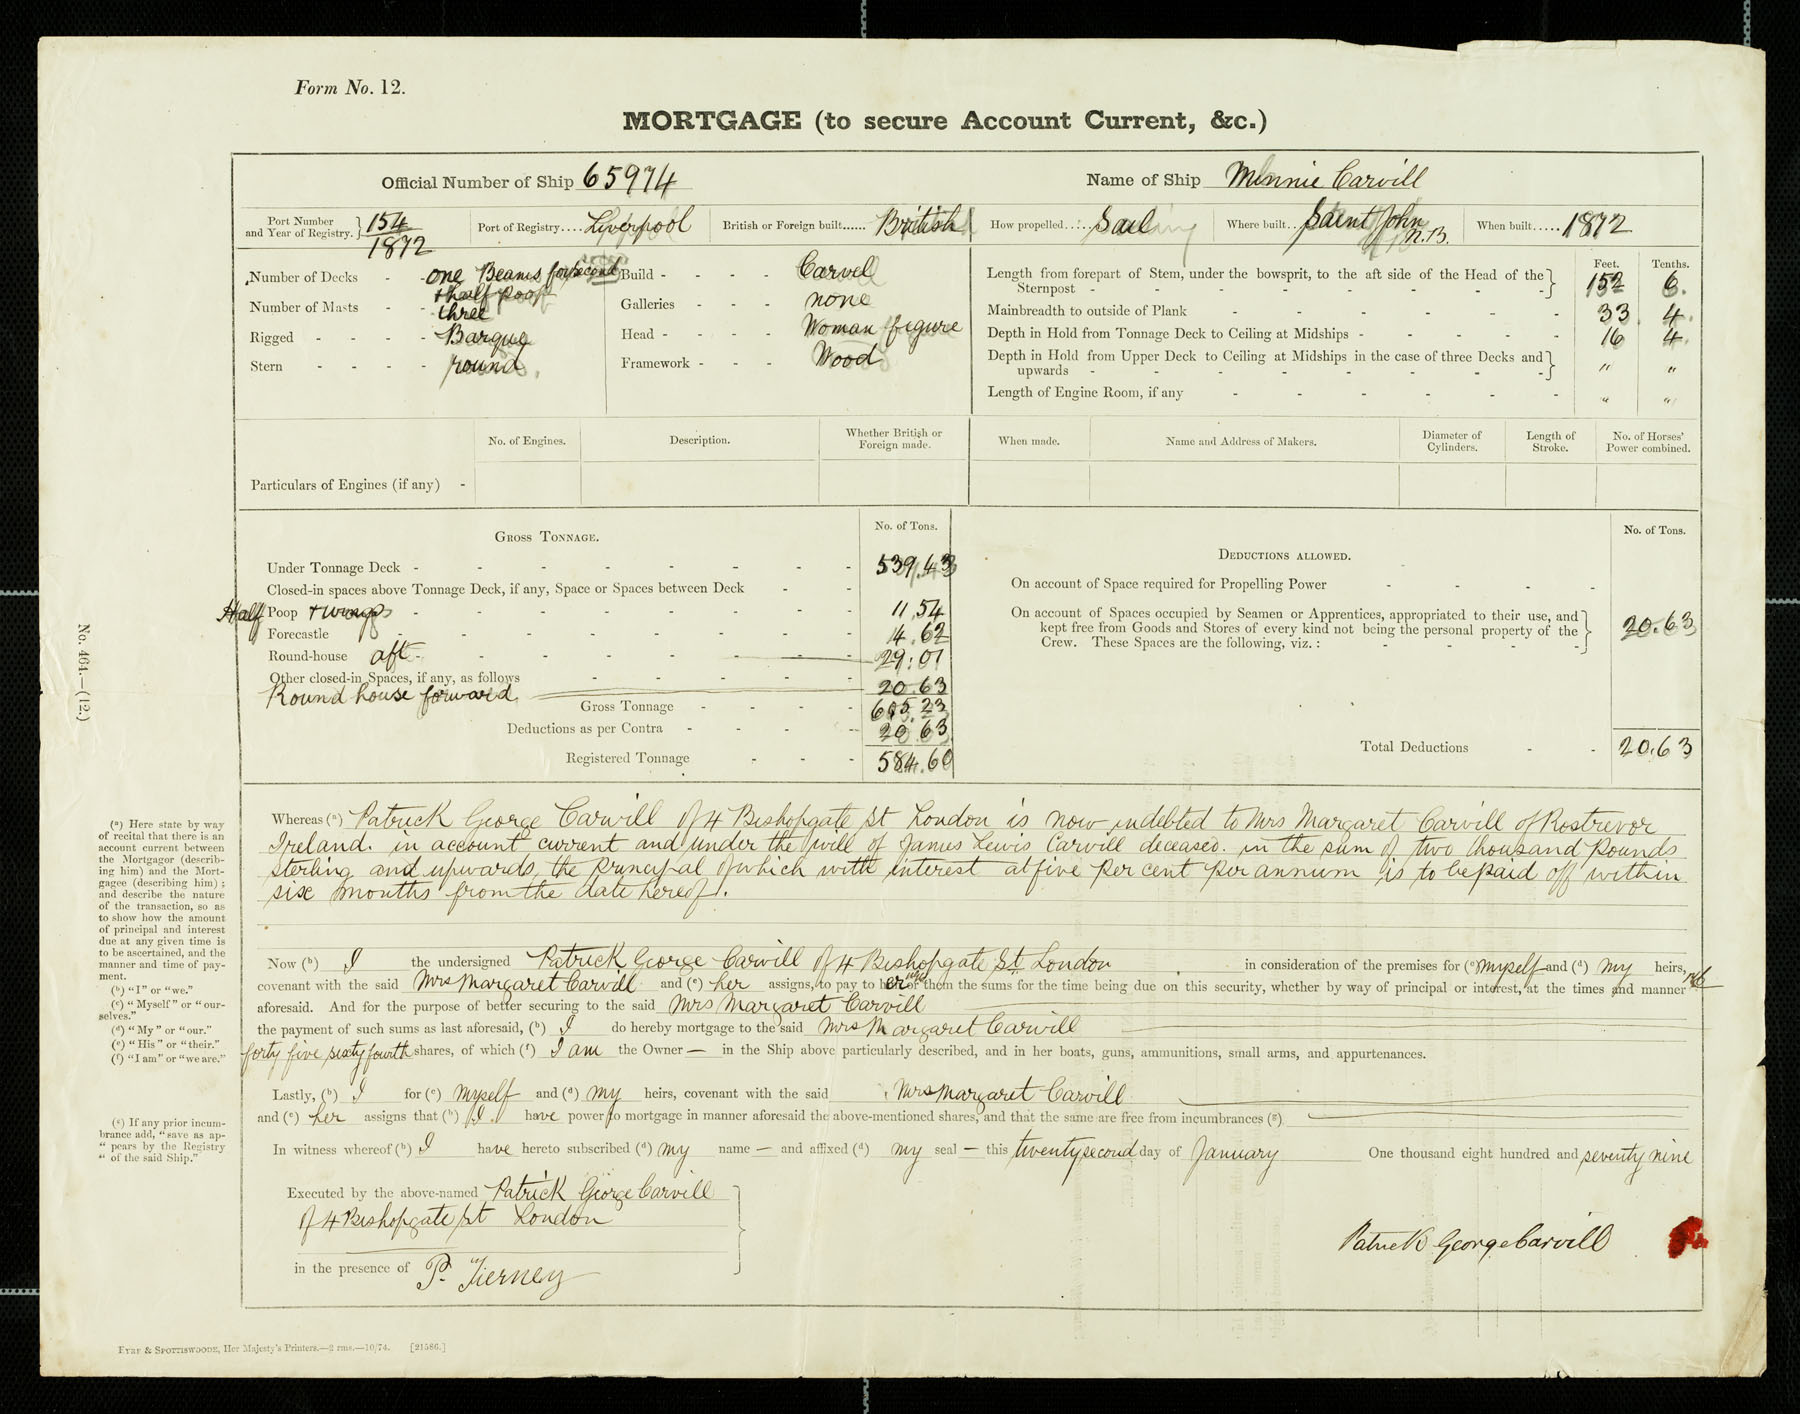 Form No. 12.
MORTGAGE (to secure Account Current, &c.)
Official Number of Ship 65974 Name of Ship Minnie Carvill
Port Number and Year of Registry. 154 / 1872 Port of Registry.... Liverpool British or Foreign built...... British How propelled..... Sail Where built.. Saint John N.B. When built..... 1872
Number of Decks - - one Beams for second
+ half poop
Number of Masts - - three
Rigged - - - - Barque
Stern - - - - round
Build - - - - Carvel
Galleries - - - none
Head - - - - Woman figure
Framework - - - Wood
Feet. Tenths.
Length from forepart of Stem, under the bowsprit, to the aft side of the Head of the
Sternpost - - - - - - - - 152 6.
Mainbreadth to outside of Plank - - - - - - 33 4.
Depth in Hold from Tonnage Deck to Ceiling at Midships - - - - - 16 4.
Depth in Hold from Upper Deck to Ceiling at Midships in the case of three Decks and
upwards - - - - - - - - " "
Length of Engine Room, if any - - - - - - " "
No. of Engines. Description. Whether British or Foreign made. When made. Name and Address of Makers. Diameter of Cylinders. Length of Stroke. No. of Horses' Power combined.
Particulars of Engines (if any) -
GROSS TONNAGE. No. of Tons.
Under Tonnage Deck - - - - - - - - 539.43
Closed-in spaces above Tonnage Deck, if any, Space or Spaces between Deck - -
Half Poop + wings - - - - - - - 11.54
Forecastle - - - - - - - - 4.62
Round-house aft - - - - - - 29.01
Other closed-in Spaces, if any, as follows - - - - - 20.63
Round house forward
Gross Tonnage - - - - 605.23
Deductions as per Contra - - - - 20.63
Registered Tonnage - - - 584.60
DEDUCTIONS ALLOWED. No. of Tons.
On account of Space required for Propelling Power - - - -
On account of Spaces occupied by Seamen or Apprentices, appropriated to their use, and
kept free from Goods and Stores of every kind not being the personal property of the
Crew. These Spaces are the following, viz. : - - - - 20.63
Total Deductions - - 20.63
No. 464.—(12.)
Whereas (a) Patrick George Carvill of 4 Bishopgate St London is now indebted to Mrs Margaret Carvill of Rostrevor
Ireland. in account current and under the will of James Lewis Carvill deceased. in the sum of two thousand pounds
sterling and upwards, the principal of which with interest at five per cent per annum is to be paid off within
six months from the date hereof.
Now (b) I the undersigned Patrick George Carvill of 4 Bishopgate St. London in consideration of the premises for (c) myself and (d) my heirs,
covenant with the said Mrs Margaret Carvill and (e) her assigns, to pay to her or them the sums for the time being due on this security, whether by way of principal or interest, at the times and manner
aforesaid. And for the purpose of better securing to the said Mrs Margaret Carvill
the payment of such sums as last aforesaid, (b) I do hereby mortgage to the said Mrs Margaret Carvill
forty five sixty fourth shares, of which (f) I am the Owner — in the Ship above particularly described, and in her boats, guns, ammunitions, small arms, and appurtenances.
Lastly, (b) I for (c) myself and (d) my heirs, covenant with the said Mrs Margaret Carvill
and (e) her assigns that (b) I have power to mortgage in manner aforesaid the above-mentioned shares, and that the same are free from incumbrances (g)
In witness whereof (b) I have hereto subscribed (d) my name — and affixed (d) my seal — this twenty second day of January One thousand eight hundred and seventy nine
Executed by the above-named Patrick George Carvill
of 4 Bishopgate St London
in the presence of P. Tierney
Patrick George Carvill
(a) Here state by way
of recital that there is an
account current between
the Mortgagor (describ-
ing him) and the Mort-
gagee (describing him) ;
and describe the nature
of the transaction, so as
to show how the amount
of principal and interest
due at any given time is
to be ascertained, and the
manner and time of pay-
ment.
(b) "I" or "we."
(c) "Myself" or "our-
selves."
(d) "My" or "our."
(e) "His" or "their."
(f) "I am" or "we are."
(g) If any prior incum-
brance add, "save as ap-
"pears by the Registry
"of the said Ship."
EYRE & SPOTTISWOODE, Her Majesty's Printers.—2 rms.—10/74. [21586.]